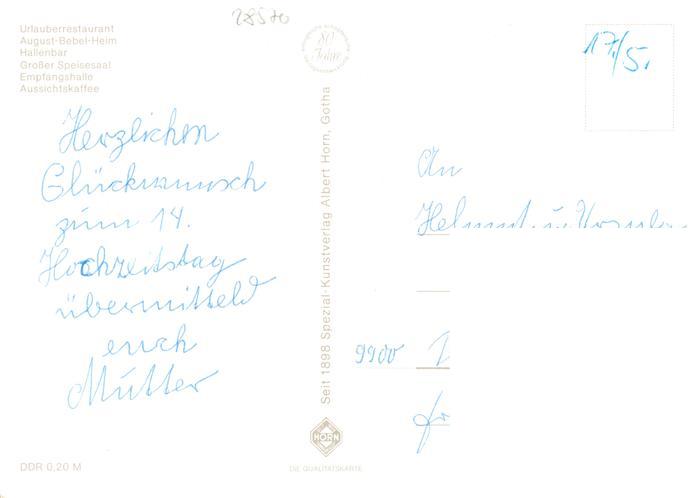 28570
Urlauberrestaurant
August-Bebel-Heim
Hallenbar
Großer Speisesaal
Empfangshalle
Aussichtskaffee
80 Jahre
17./5.
Herzlichen
Glückwunsch
zum 14.
Hochzeitstag
übermitteld
euch
Mutter
Seit 1898 Spezial-Kunstverlag Albert Horn, Gotha
An
Helmut u. Ursula
9900 I
fr
HORN
DDR 0,20 M
DIE QUALITÄTSKARTE